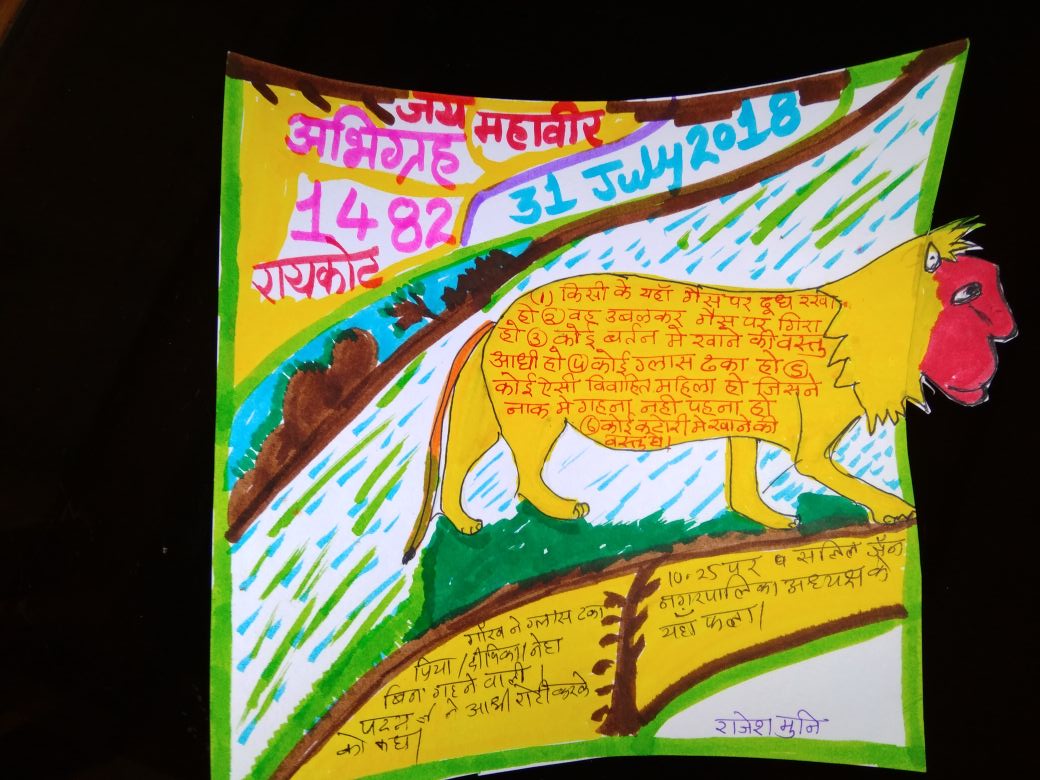 जय महावीर
अभिग्रह
1482
रायकोट
31 July 2018
(1) किसी के यहाँ गैस पर दूध रखा
हो (2) वह उबलकर गैस पर गिरा
हो (3) कोई बर्तन मे खाने की वस्तु
आधी हो (4) कोई ग्लास ढका हो (5)
कोई ऐसी विवाहित महिला हो जिसने
नाक मे गहना नही पहना हो
(6) कोई कटारी मे खाने की
वस्तु हो।
गौरव ने ग्लास ढका
प्रिया / दीपिका / नेहा
बिना गहने वाली।
पदम ने आधी रोटी करके
को कहा।
10.25 पर व सतिल जैन
नगरपालिका अध्यक्ष के
यहाँ फला।
राजेश मुनि